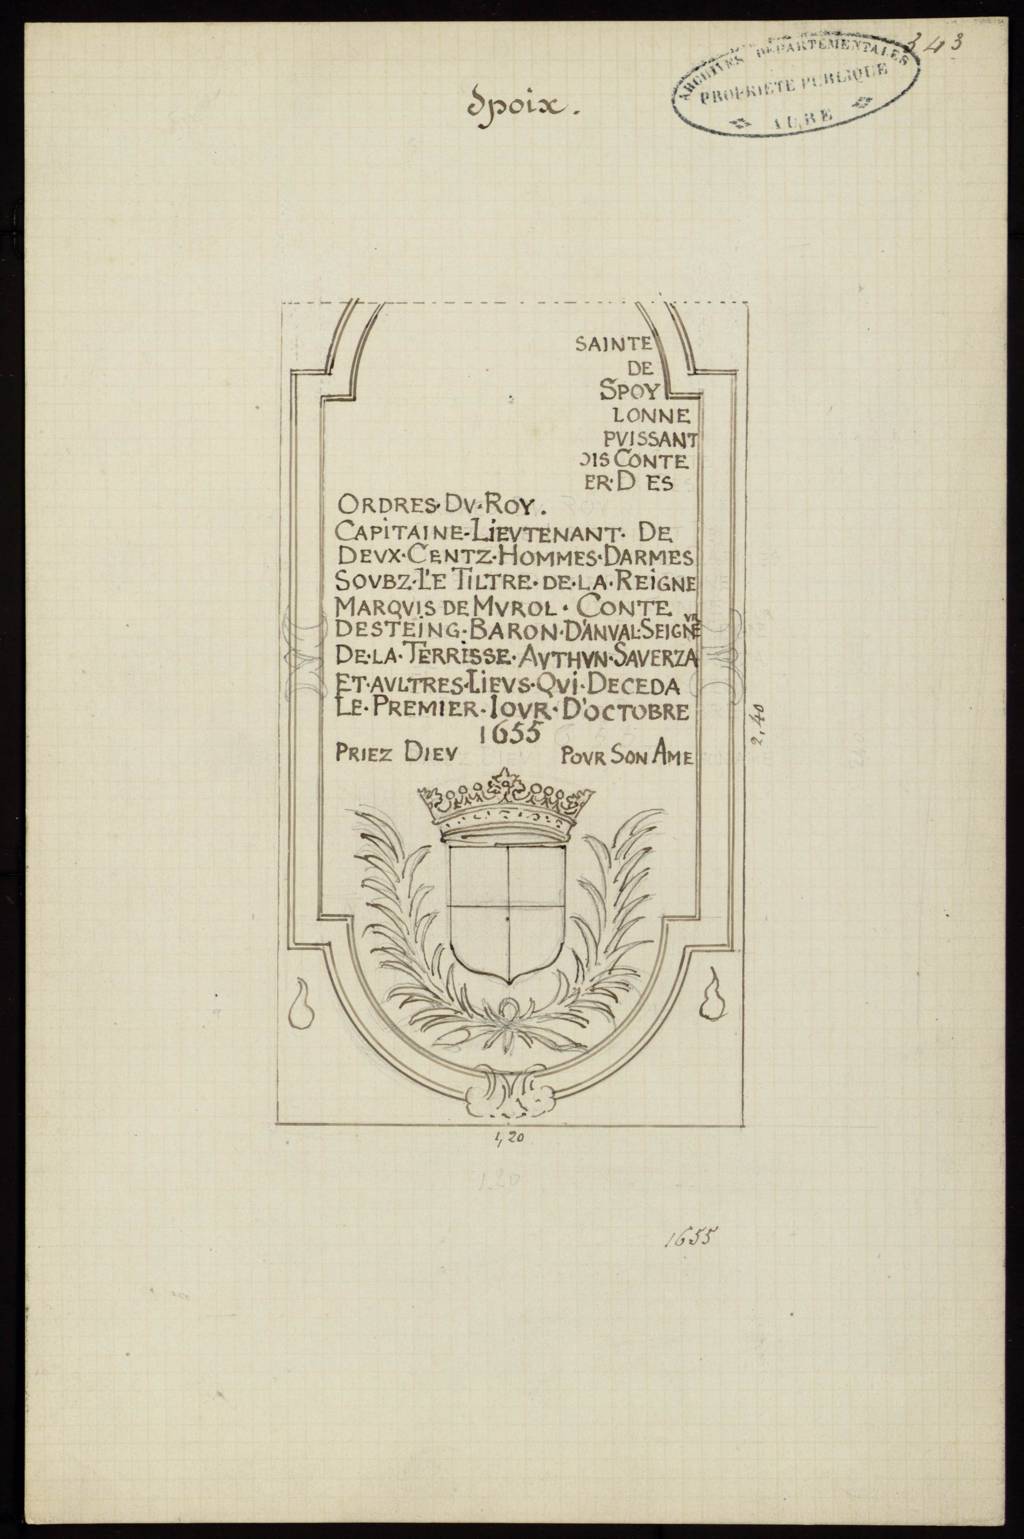 343
ARCHIVES DÉPARTEMENTALES
PROPRIÉTÉ PUBLIQUE
AUBE
Spoix.
SAINTE
DE
SPOY
LONNE
PVISSANT
OIS CONTE
ER·D ES
ORDRES·DV·ROY.
CAPITAINE-LIEVTENANT· DE
DEVX·CENTZ·HOMMES·DARMES
SOVBZ·LE TILTRE·DE·LA·REIGNE
MARQVIS DE MVROL· CONTE
DESTEING·BARON·D'ANVAL·SEIGNEVR
DE·LA·TERRISSE·AVTHVN·SAVERZA
ET·AVLTRES·LIEVS·QVI·DECEDA
LE·PREMIER·IOVR·D'OCTOBRE
1655
PRIEZ DIEV POVR SON AME
2,40
1,20
1.20
1655